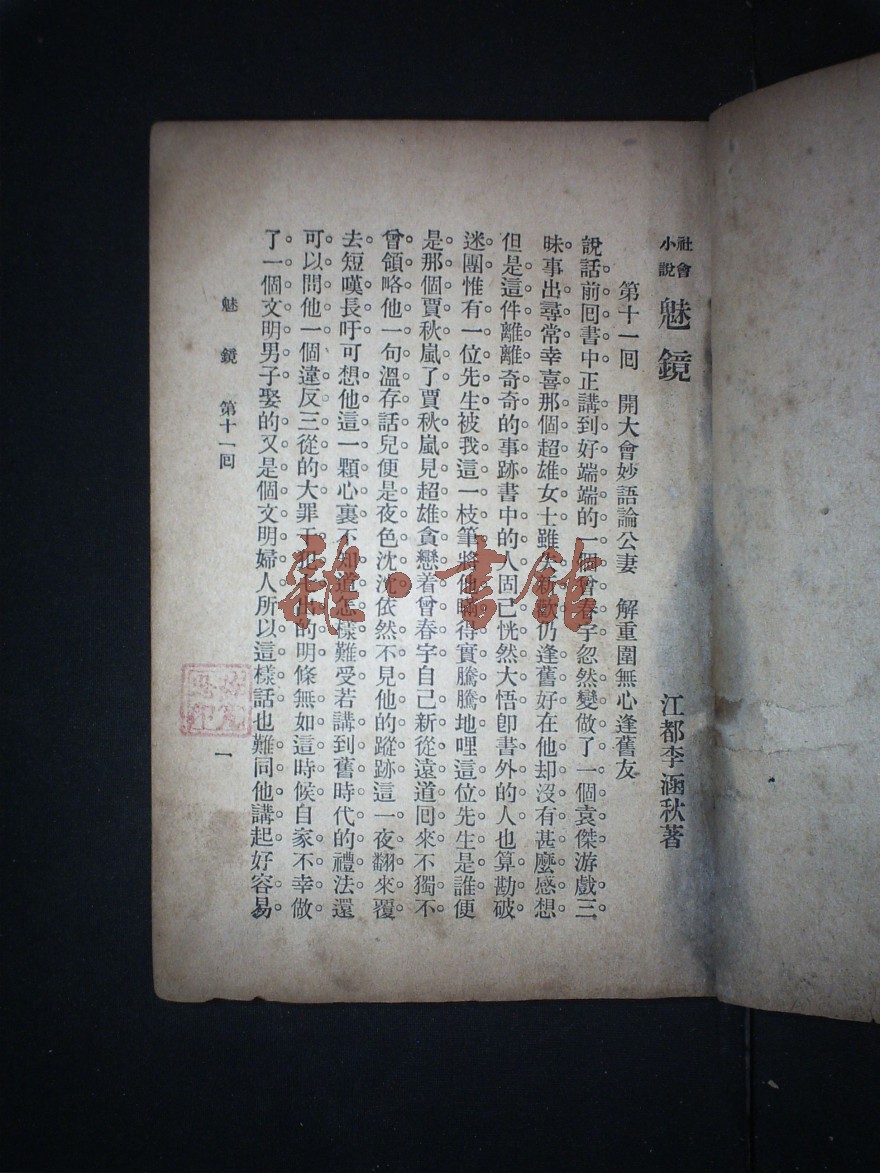 社會小說 魅鏡 江都李涵秋著
第十一回 開大會妙語論公妻 解重圍無心逢舊友
說話前回書中正講到好端端的一個曾春宇忽然變做了一個袁傑游戲三
昧事出尋常幸喜那個超雄女士雖失新歡仍逢舊好在他却沒有甚麼感想
但是這件離離奇奇的事跡書中的人固已恍然大悟卽書外的人也算勘破
迷團惟有一位先生被我這一枝筆將他瞞得實騰騰地哩這位先生是誰便
是那個賈秋嵐了賈秋嵐見超雄貪戀着曾春宇自己新從遠道回來不獨不
曾領略他一句溫存話兒便是夜色沈沈依然不見他的蹤跡這一夜翻來覆
去短嘆長吁可想他這一顆心裏不知道怎樣難受若講到舊時代的禮法還
可以問他一個違反三從的大罪干犯七出的明條無如這時候自家不幸做
了一個文明男子娶的又是個文明婦人所以這樣話也難同他講起好容易
魅鏡 第十一回 一
雜·書館